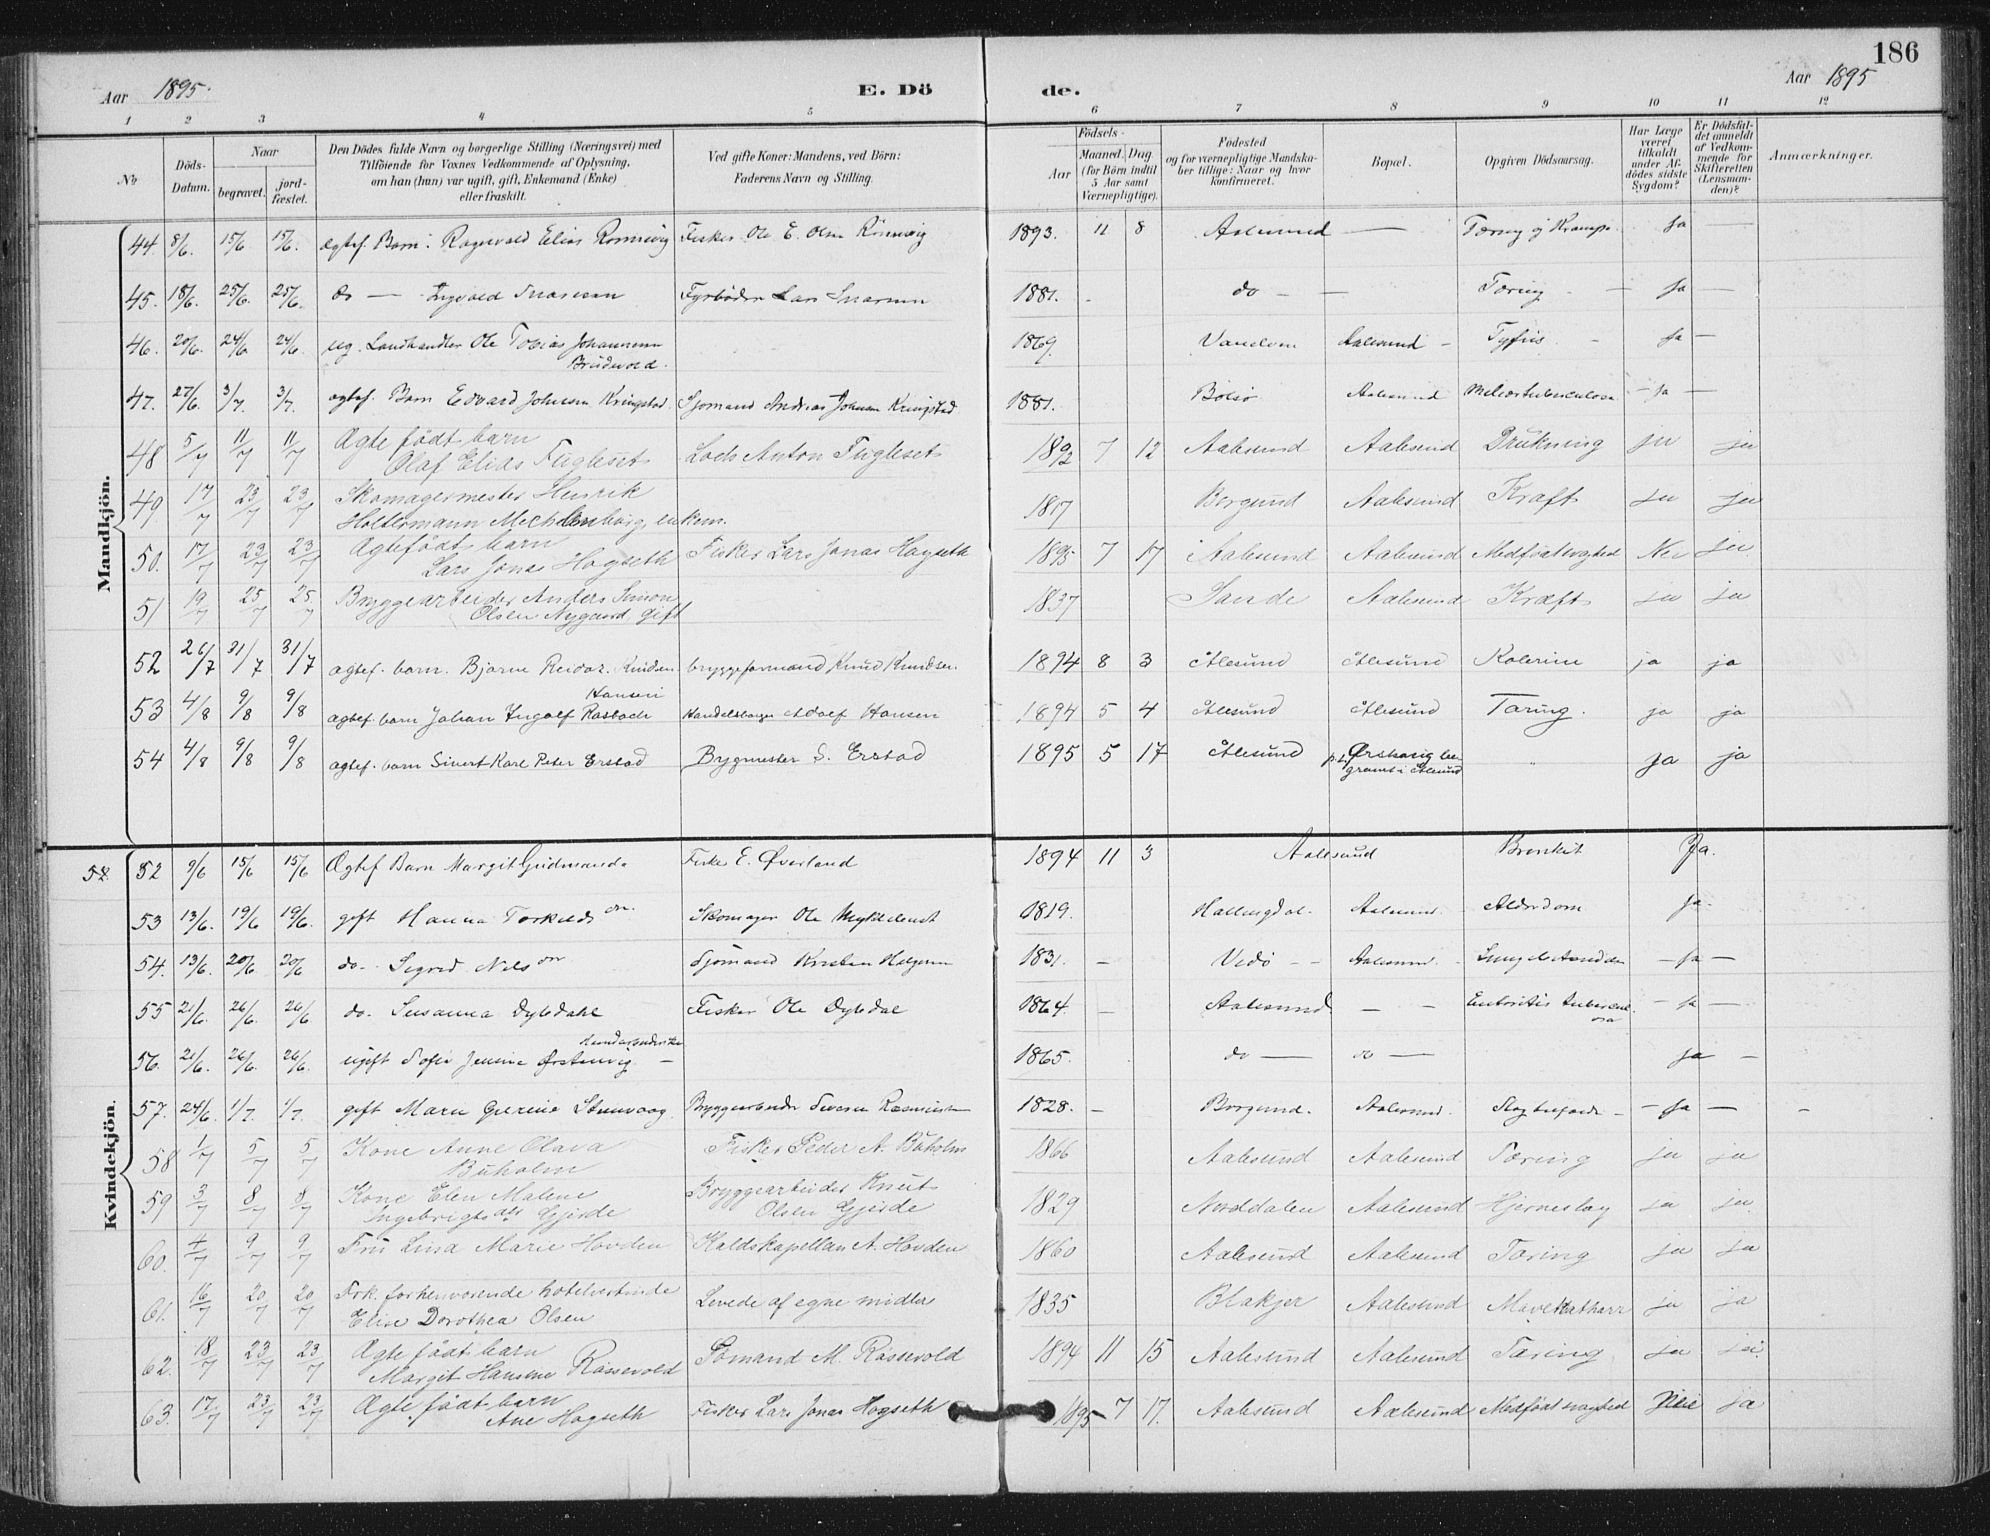 186
Aar 1895. E. Dö de. Aar 1895
1 2 3 4 5 6 7 8 9 10 11 12
No
Døds-Datum.
Naar
begravet.
jord-fæstet.
Den Dödes fulde Navn og borgerlige Stilling (Næringsvei) med
Tilföiende for Voxnes Vedkommende af Oplysning,
om han (hun) var ugift, gift, Enkemand (Enke)
eller fraskilt.
Ved gifte Koner: Mandens, ved Börn:
Faderens Navn og Stilling.
Födsels-
Aar
Maaned. Dag.
(for Börn indtil
5 Aar samt
Værnepligtige).
Födested
og for værnepligtige Mandska-
ber tillige: Naar og hvor
konfirmeret.
Bopæl.
Opgiven Dödsaarsag.
Har Læge
været
tilkaldt
under Af-
dödes sidste
Sygdom?
Er Dödsfal-
det anmeldt
af Vedkom-
mende for
Skifteretten
(Lensman-
den)?
Anmærkninger.
Mandkjön.
44. 8/6. 15/6 15/6. ægtef. Barn: Ragnvald Elias Rönnevig Fisker Ole E. Olsen Rönnevig 1893. 11 8 Aalesund — Tæring og Krampe. Ja —
45. 18/6. 25/6. 25/6. do — Ingvald Snaresen Fyrbøder Lars Snaresen 1881. - do — — Tæring — Ja —
46. 20/6. 24/6 24/6. ug. Landhandler Ole Tobias Johannesen 1869. Vanelven Aalesund - Tyfus - Ja —
Brudevold.
47. 27/6. 3/7. 3/7. ægtef. Barn Edvard Johnsen Kringstad. Sjømand Andreas Johnsen Kringstad 1881. Bolsø Aalesund — Ja —
48 5/7 11/7 11/7 Ægte født barn
Olaf Elias Fugleset Anton Fugleset 1892 7 12 Aalesund Aalesund Drukning ja ja
49 17/7 23/7 23/7 Skomagermester Henrik
Holtermann Mechlenborg, enkem. 1817 Borgund Aalesund Kræft ja ja
50. 17/7 23/7 23/7 Ægtefødt barn
Lars Jonas Hogseth Fisker Lars Jonas Hogseth 1895 7 17 Aalesund Aalesund Medfødt svaghed Nei ja
51 19/7 25/7 25/7 Bryggearbeider Anders Simon
Olsen Nygaard gift 1837 Sande Aalesund Kræft ja ja
52 26/7 31/7 31/7 ægtef. barn. Bjarne Reidar Knudsen bryggeformand Knud Knudsen. 1894 8 3 Ålesund Ålesund Kolerine ja ja
53 4/8 9/8 9/8 ægtef. barn Johan Ingolf Rasbach Hansen Handelsborger Adolf Hansen 1894 5 4 Ålesund Ålesund Tæring. ja ja
54 4/8 9/8 9/8 ægtef. barn Sivert Karl Peter Erstad Brygmester S. Erstad 1895 5 17 Ålesund Ørskovig be-
gravet i Ålesund " ja ja
Kvindekjön.
52 52 9/6 15/6 15/6 Ægtef Barn Margit Gudmunda Fisker E. Øverland 1894 11 3 Aalesund Bronkit Ja.
53 13/6. 19/6 19/6. gift Hanna Torkildsdr. Skomager Ole Myklebust 1819. Hallingdal. Aalesund. Alderdom Ja.
54. 13/6. 20/6 20/6 do. Sigrid Nilsdr Sjømand Kristen Helgesen 1831. — Vedø - - Aalesund. - — Ja —
55 21/6. 26/6. 26/6 do. Susanna Dybdahl Fisker Ole Dybdal 1864. — Aalesund — — Enteritis tubercul-
osa — Ja —
56. 21/6. 26/6. 26/6. ugift Sofie Jensine Ørstenvig — 1865. do — do — ja —
57. 24/6. 1/7. 1/7. gift Marie Gurine Stenvaag Bryggearbeider Severin Rasmussen 1828. — Borgund. Aalesund. Slagtilfælde — Ja — -
58 1/7 5/7 5/7 Kone Anne Olava
Buholm Fisker Peder A. Buholm 1866 Aalesund Aalesund Tæring ja ja
59 3/7 8/7 8/7 Kone Elen Malene
Ingebrigtsdtr Gjerde Bryggearbeider Knut
Olsen Gjerde 1829 Norddalen Aalesund Hjerneslag ja ja
60. 4/7 9/7 9/7 Fru Lina Marie Hovden Kaldskapellan A. Hovden 1860 Aalesund Aalesund Tæring ja ja
61. 16/7 20/7 20/7 Frk. forhenværende hotelvertinde
Elise Dorothea Olsen Levede af egne midler 1835 Blakjer Aalesund Mavekatharr ja ja
62. 18/7 23/7 23/7 Ægte født barn
Margit Hansine Rossevold Sømand M. Rossevold 1894 11 15 Aalesund Aalesund Tæring ja ja
63. 17/7 23/7 23/7 Ægte født barn
Ane Hogseth Fisker Lars Jonas Hogseth 1895 7 17. Aalesund Aalesund Medfødt svaghed Nei ja